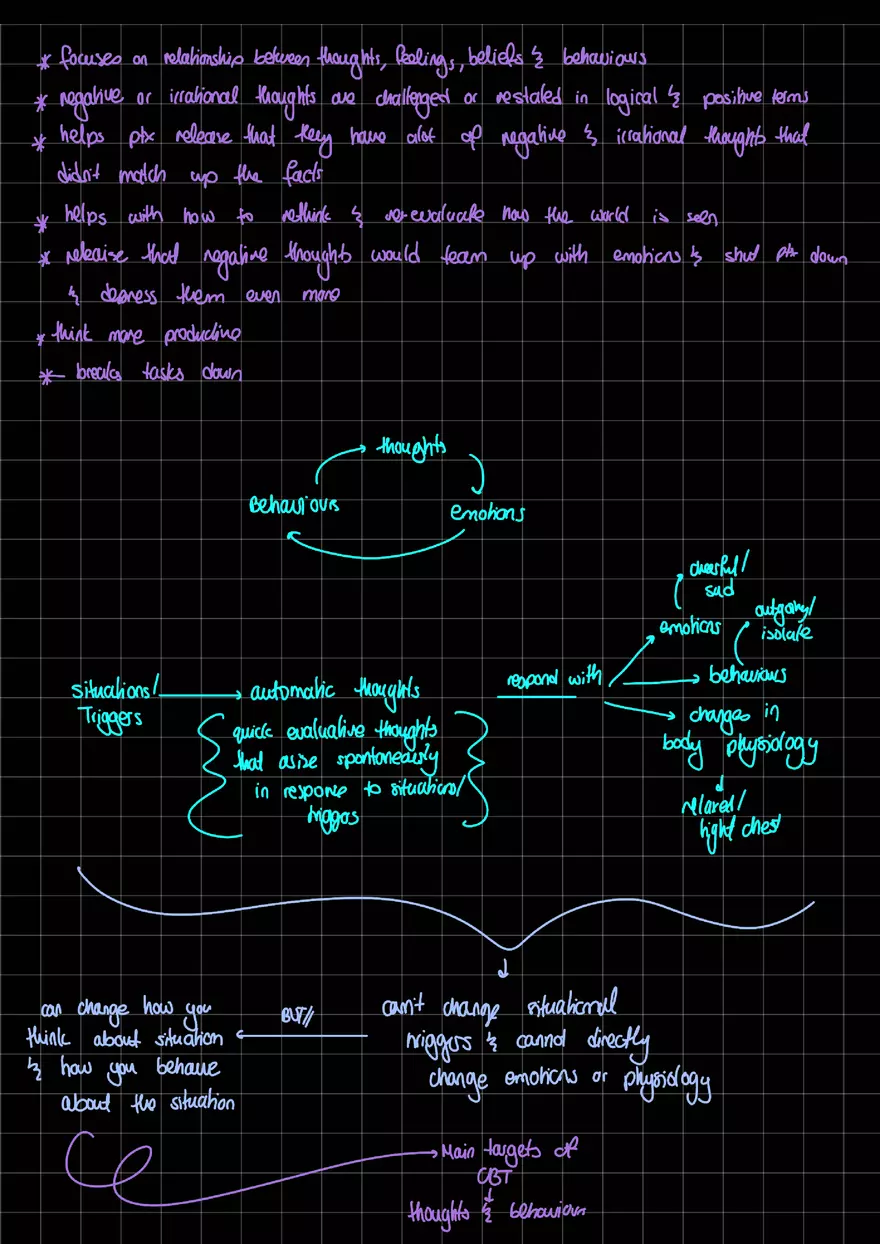 * focuses on relationship between thoughts, feelings, beliefs & behaviours
* negative or irrational thoughts are challenged or restated in logical & positive terms
* helps ptx release that they have alot of negative & irrational thoughts that
didn't match up the facts
* helps with how to rethink & re-evaluate how the world is seen
* releaise that negative thoughts would team up with emotions & shut ptx down
& depress them even more
* think more productive
* breaks tasks down
thoughts
Behaviours
emotions
cheerful/
sad
outgoing/
isolate
emotions
respond with
behaviours
situations/
Triggers
automatic thoughts
changes in
body physiology
quick evaluative thoughts
that asize spontaneously
in response to situations/
triggas
relaxed/
tight chest
can change how you
think about situation
& how you behave
about the situation
BUT//
can't change situational
triggers & cannot directly
change emotions or physiology
Main targets of
CBT
thoughts & behaviour